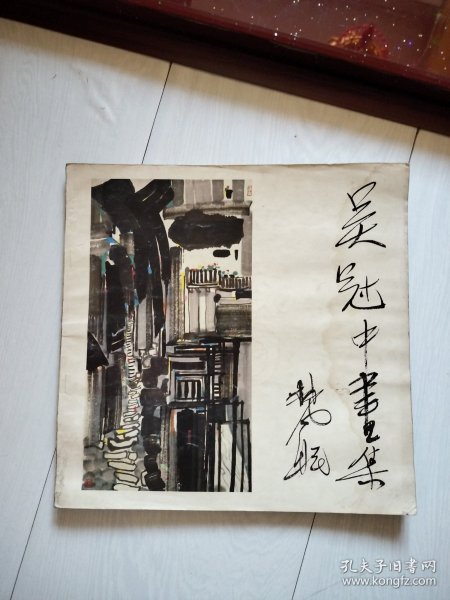 吴冠中画集
孔夫子旧书网
www.kongfz.com